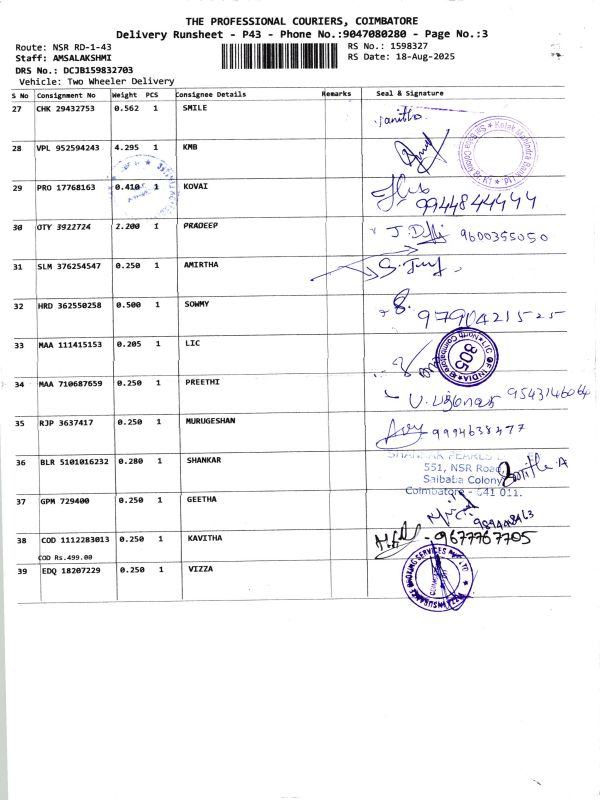 THE PROFESSIONAL COURIERS, COIMBATORE
Delivery Runsheet - P43 - Phone No.:9047080280 - Page No.:3
Route: NSR RD-1-43
RS No.: 1598327
Staff: AMSALAKSHMI
RS Date: 18-Aug-2025
DRS No.: DCJB159832703
Vehicle: Two Wheeler Delivery
S No Consignment No Weight PCS Consignee Details Remarks Seal & Signature
27 CHK 29432753 0.562 1 SMILE
28 VPL 952594243 4.295 1 KMB
29 PRO 17768163 0.410 1 KOVAI
9944844444
30 OTY 3922724 2.200 1 PRADEEP
9600355050
31 SLM 376254547 0.250 1 AMIRTHA
32 HRD 362550258 0.500 1 SOWMY
9790421525
33 MAA 111415153 0.205 1 LIC
LIC OF INDIA
805
34 MAA 710687659 0.250 1 PREETHI
9543146064
35 RJP 3637417 0.250 1 MURUGESHAN
9994638477
36 BLR 5101016232 0.280 1 SHANKAR
551, NSR Road,
Saibaba Colony
Coimbatore - 641 011.
37 GPM 729400 0.250 1 GEETHA
38 COD 1112283013 0.250 1 KAVITHA
9677767705
COD Rs.499.00
39 EDQ 18207229 0.250 1 VIZZA